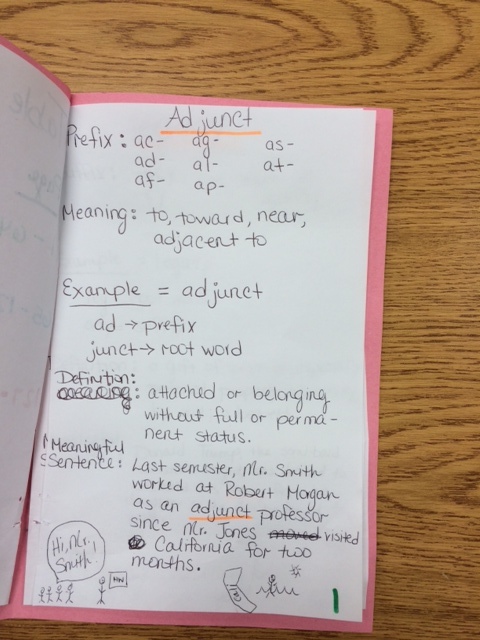 Adjunct
Prefix: ac- ag- as-
ad- al- at-
af- ap-
Meaning: to, toward, near,
adjacent to
Example = adjunct
ad → prefix
junct → root word
Definition:
meaning: attached or belonging
without full or perma-
nent status.
Meaningful
Sentence: Last semester, Mr. Smith
worked at Robert Morgan
as an adjunct professor
since Mr. Jones moved visited
California for two
months.
Hi, Mr.
Smith!
HW
1